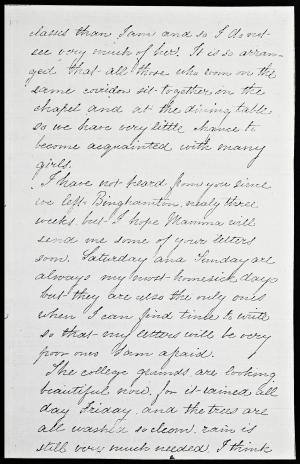 classes than I am and so I do not
see very much of her. It is so arran-
ged that all those who room on the
same corridor sit together on the
chapel and at the dining table
so we have very little chance to
become acquainted with many
girls.
I have not heard from you since
we left Binghamton, nealy three
weeks, but I hope Mamma will
send me some of your letters
soon. Saturday and Sunday are
always my most homesick days
but they are also the only ones
when I can find time to write
so that my letters will be very
poor ones I am afraid.
The college grounds are looking
beautiful now, for it rained all
day Friday, and the trees are
all washed so clean. rain is
still very much needed. I think